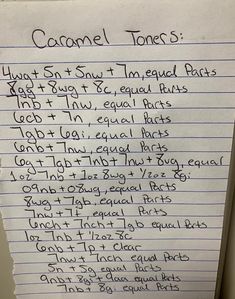 Caramel Toners:
4wg + 5n + 5nw + 7m, equal Parts
8gg + 8wg + 8c, equal Parts
7nb + 7nw, equal Parts
6cb + 7n, equal Parts
7gb + 6gi, equal Parts
6nb + 7nw, equal Parts
6g + 7gb + 7nb + 7nw + 8wg, equal
1oz 7nb + 1oz 8wg + 1/2oz 8gi
09nb + 08wg, equal Parts
8wg + 7gb, equal Parts
7nw + 7t, equal Parts
6nch + 7nch + 7gb equal Parts
1oz 7nb + 1/2oz 8c
6nb + 7p + clear
7nw + 7nch equal Parts
5n + 5g equal Parts
9nb + 8gi + 9aa equal Parts
7nb + 8gi equal Parts